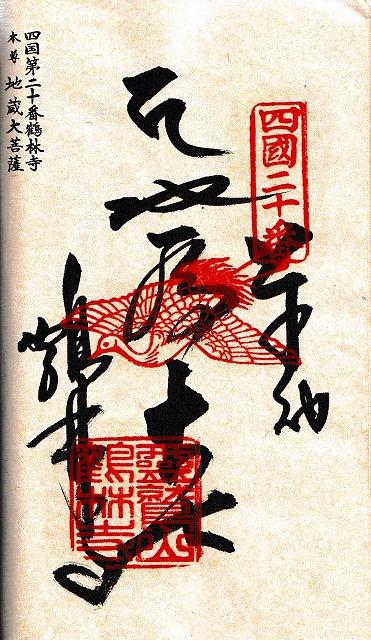 四国第二十番鶴林寺
本尊 地蔵大菩薩
四國二十番
奉納
地蔵大
鶴林寺
霊鷲山
鶴林寺